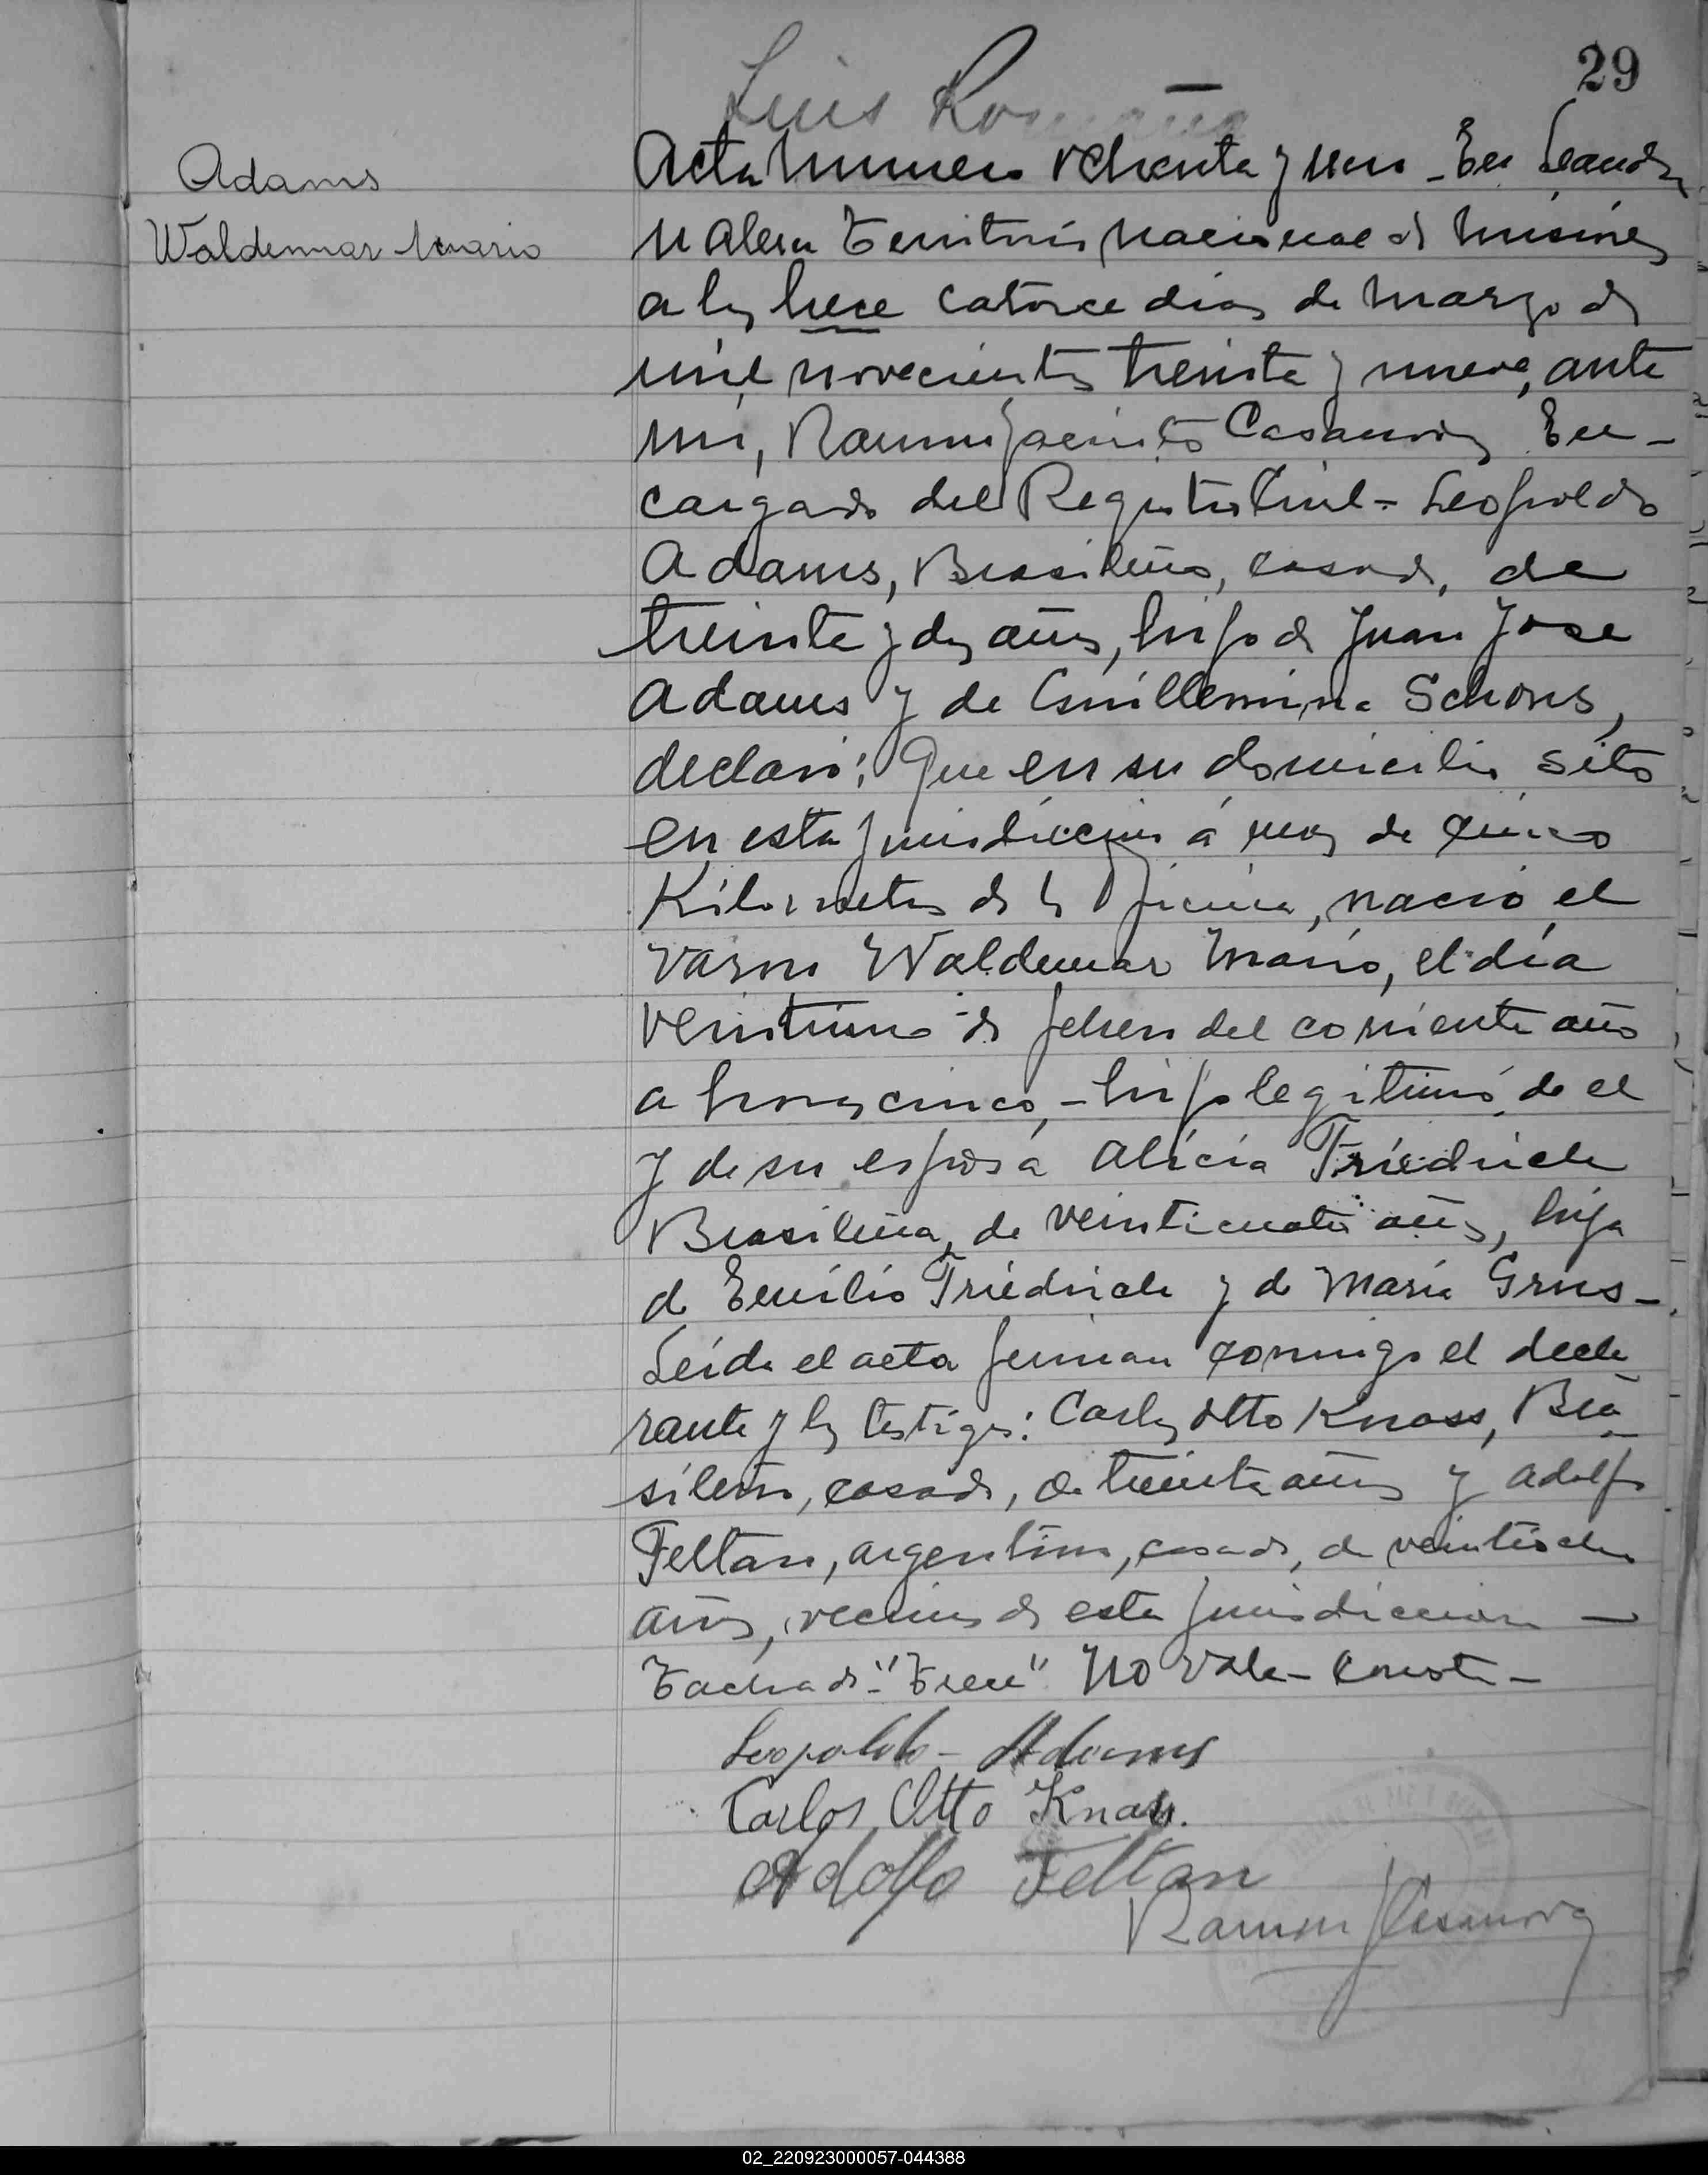 29
Luis Romaña
Adams
Waldemar Mario
Acta numero ochenta y uno - En Leandro
N Alem Territorio Nacional de Misiones
a los trece catorce dias de Marzo de
mil novecientos treinta y nueve, ante
mi, Ramon Jacinto Casanova En-
cargado del Registro Civil - Leopoldo
Adams, Brasileño, casado, de
treinta y dos años, hijo de Juan Jose
Adams y de Guillermina Schons,
declaró: Que en su domicilio sito
en esta jurisdiccion á mas de cinco
Kilometros de la Oficina, nació el
varon Waldemar Mario, el día
veintiuno de febrero del corriente año
a horas cinco, - hijo legitimo de el
y de su esposa Alicia Friedrich
Brasileña, de veinticuatro años, hija
de Emilio Friedrich y de Maria Grus -
Leida el acta firman conmigo el decla
rante y los testigos: Carlos Otto Knass, Bra
sileño, casado, de treinta años y Adolfo
Feltan, argentino, casado, de veintiocho
años, vecinos de esta jurisdiccion —
Tachado - "Trece" No vale - Conste -
Leopoldo - Adams
Carlos Otto Knass.
Adolfo Feltan
Ramon J Casanova
02_220923000057-044388